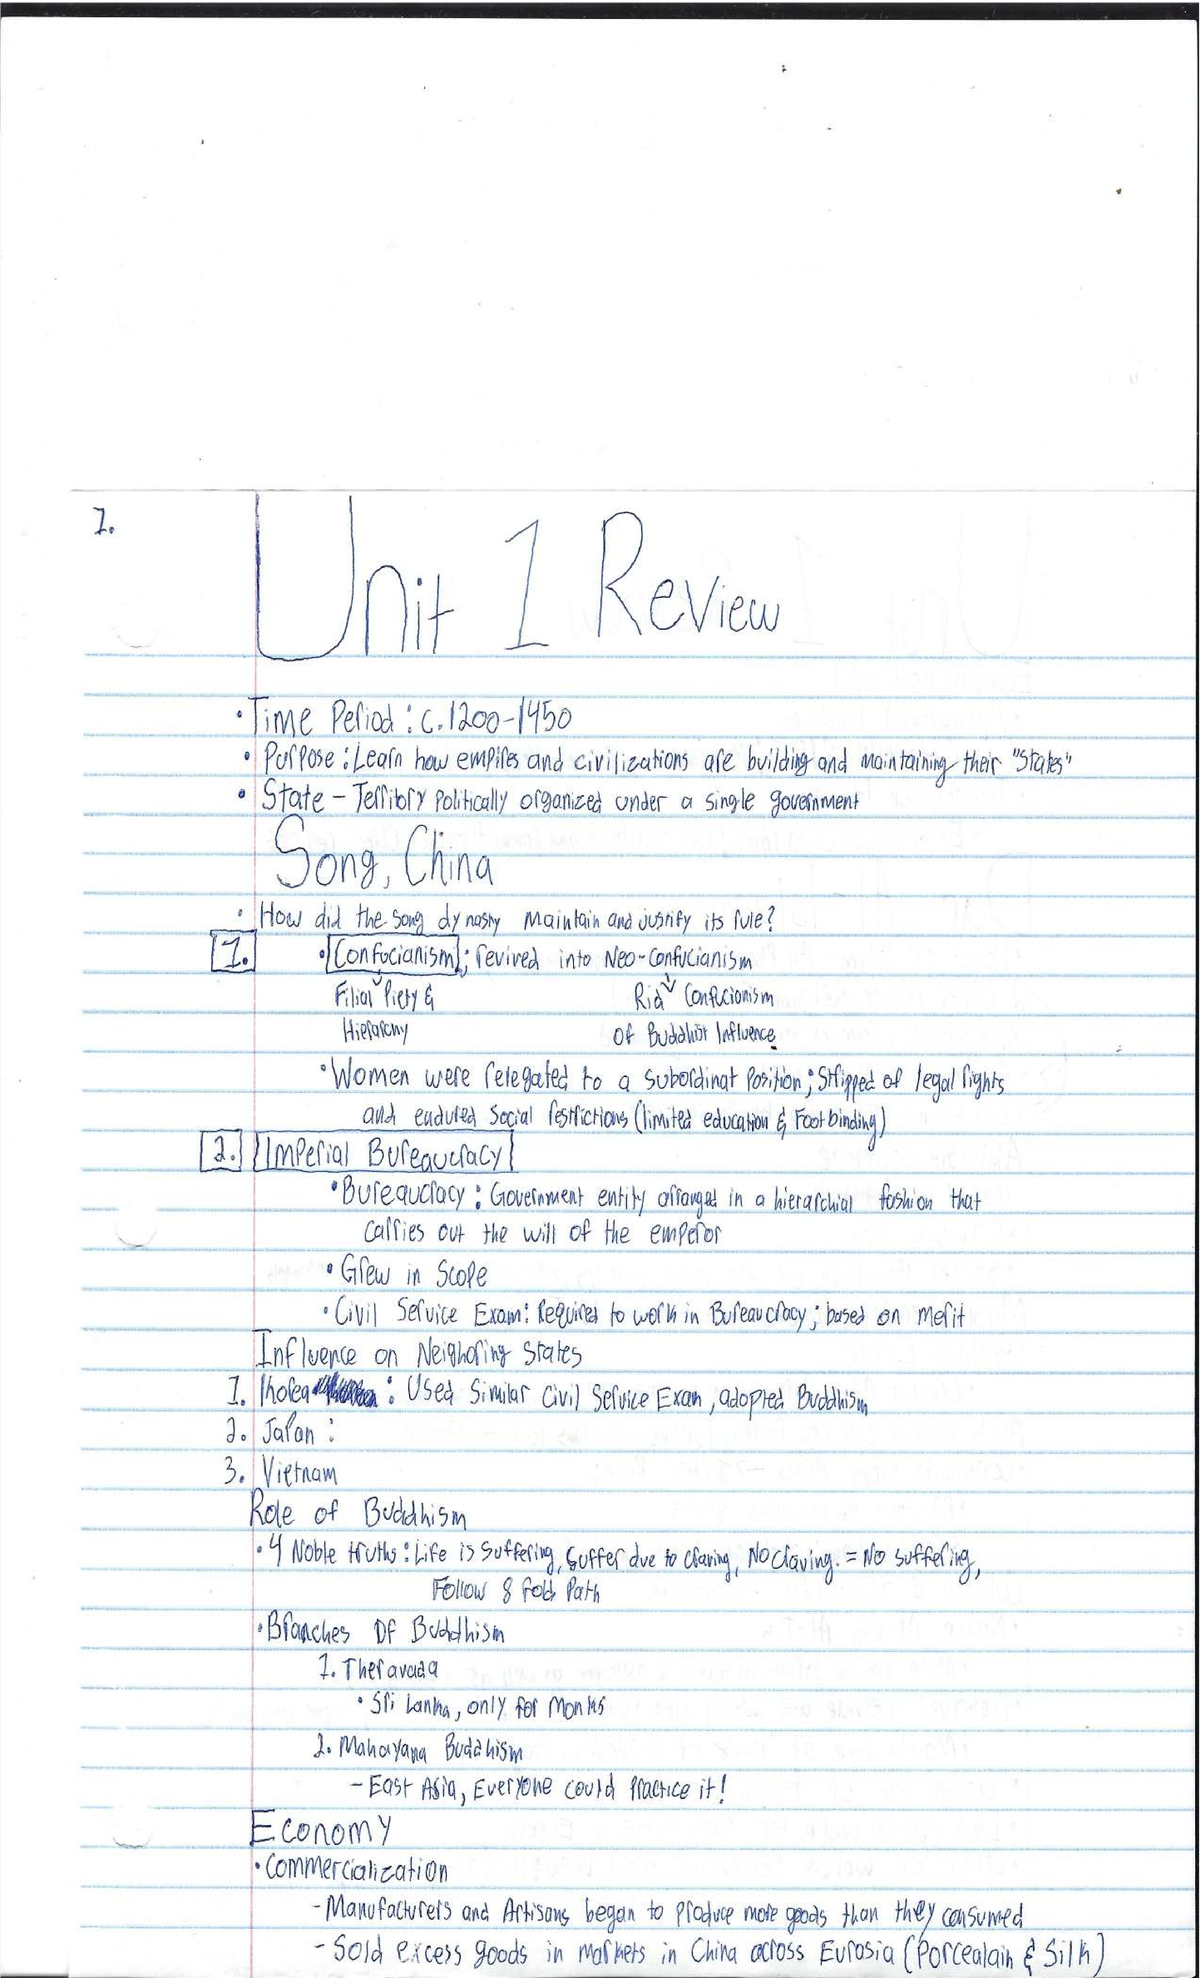 1.
Unit 1 Review
• Time Period : c. 1200-1450
• Purpose : Learn how empires and civilizations are building and maintaining their "States"
• State - Territory Politically organized under a single government
Song, China
• How did the song dynasny maintain and justify its rule?
1. • Confucianism ; revived into Neo-Confucianism
Filial Piety & Rid Confucionism
Hierarchy of Buddhist Influence.
• Women were relegated to a subordinat Position ; Stripped of legal rights
and endured social restrictions (limited education & Footbinding)
2. Imperial Bureaucracy
• Bureaucracy : Government entity arranged in a hierarchial fashion that
carries out the will of the emperor
• Grew in Scope
• Civil Service Exam : Required to work in Bureaucracy ; based on merit
Influence on Neighoring States
1. Korea : Used Similar Civil Service Exam, adopted Buddhism
2. Japan :
3. Vietnam
Role of Buddhism
• 4 Noble truths : Life is suffering, suffer due to craving, No craving. = No suffering,
Follow 8 fold Path
• Branches Of Buddhism
1. Theravada
• Sri Lanka, only for Monks
2. Mahayana Buddhism
- East Asia, Everyone could Practice it!
Economy
• Commercialization
- Manufacturers and Artisans began to produce more goods than they consumed
- Sold excess goods in markets in China across Eurasia (Porcealain & Silk)